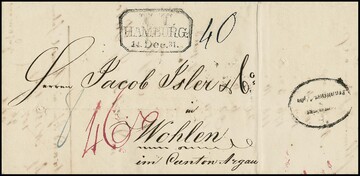 T. T.
HAMBURG.
14. Dec. 31.
40
Herren Jacob Isler & C.
in
46
Wohlen
im Canton Argau